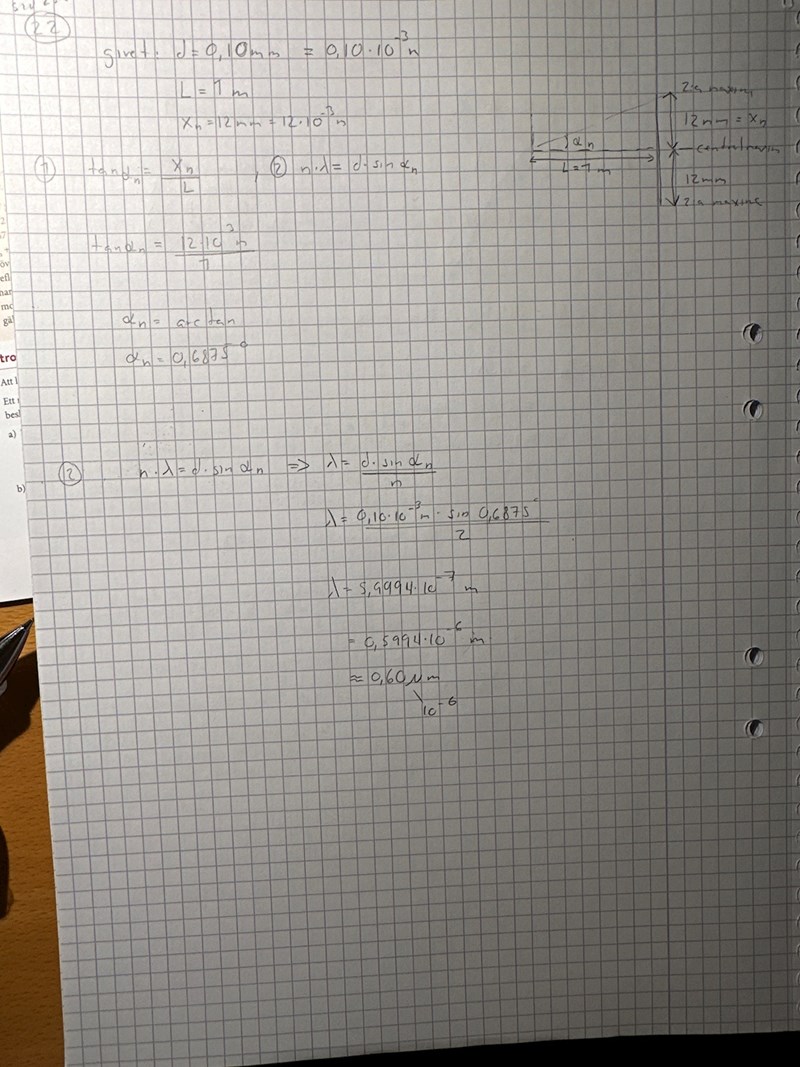 22
givet: d = 0,10mm = 0,10·10⁻³ m
L = 1 m
Xn = 12 mm = 12·10⁻³ m
2:a maxima
12mm = xn
centralmaxima
αn
L = 1 m
12mm
2:a maxima
① tanαn = Xn/L , ② n·λ = d·sin αn
tanαn = 12·10⁻³ m/1
αn = arctan
αn = 0,6875°
② n·λ = d·sin αn => λ = d·sin αn/n
λ = 0,10·10⁻³ m · sin 0,6875°/2
λ = 5,9994·10⁻⁷ m
= 0,5994·10⁻⁶ m
≈ 0,60 μm
10⁻⁶
tro
Att l
Ett
besl
a)
b)